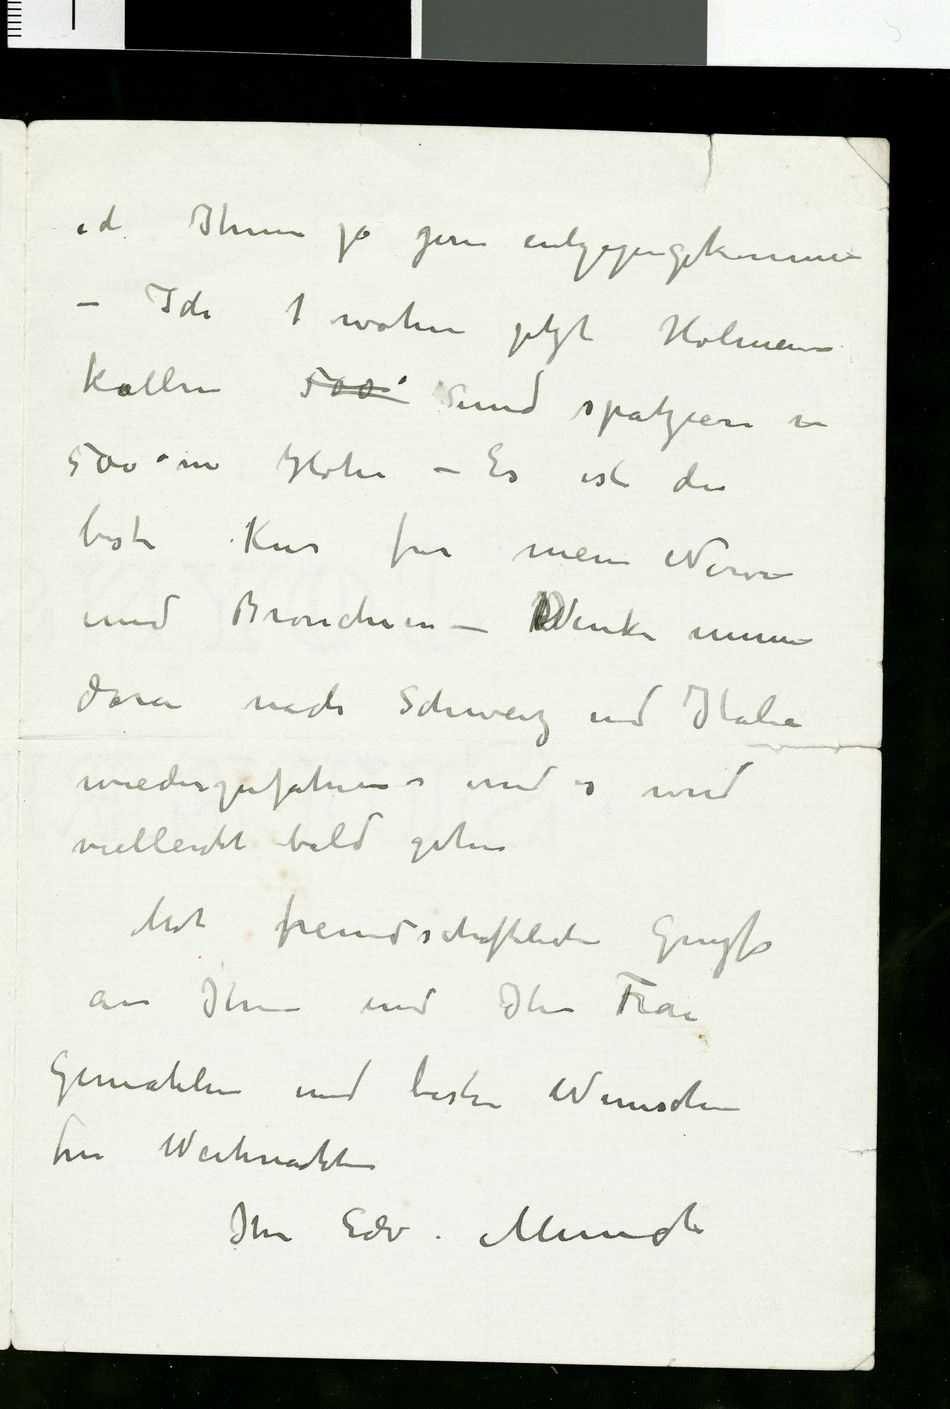 ich Ihnen ja gern entgegengekommen
– Ich wohne jetzt Holmen
kollen 500 und spatziere in
500 m Höhe – Es ist die
beste Kur fur meine Nerven
und Bronchien – Denke immer
daran nach Schweiz und Italien
wiederzufahren – und es wird
vielleicht bald gehen
Mit freundschaftlichen Grüße
an Ihnen und Ihre Frau
Gemahlin und besten Wunschen
fur Weihnachten
Ihr Edv. Munch